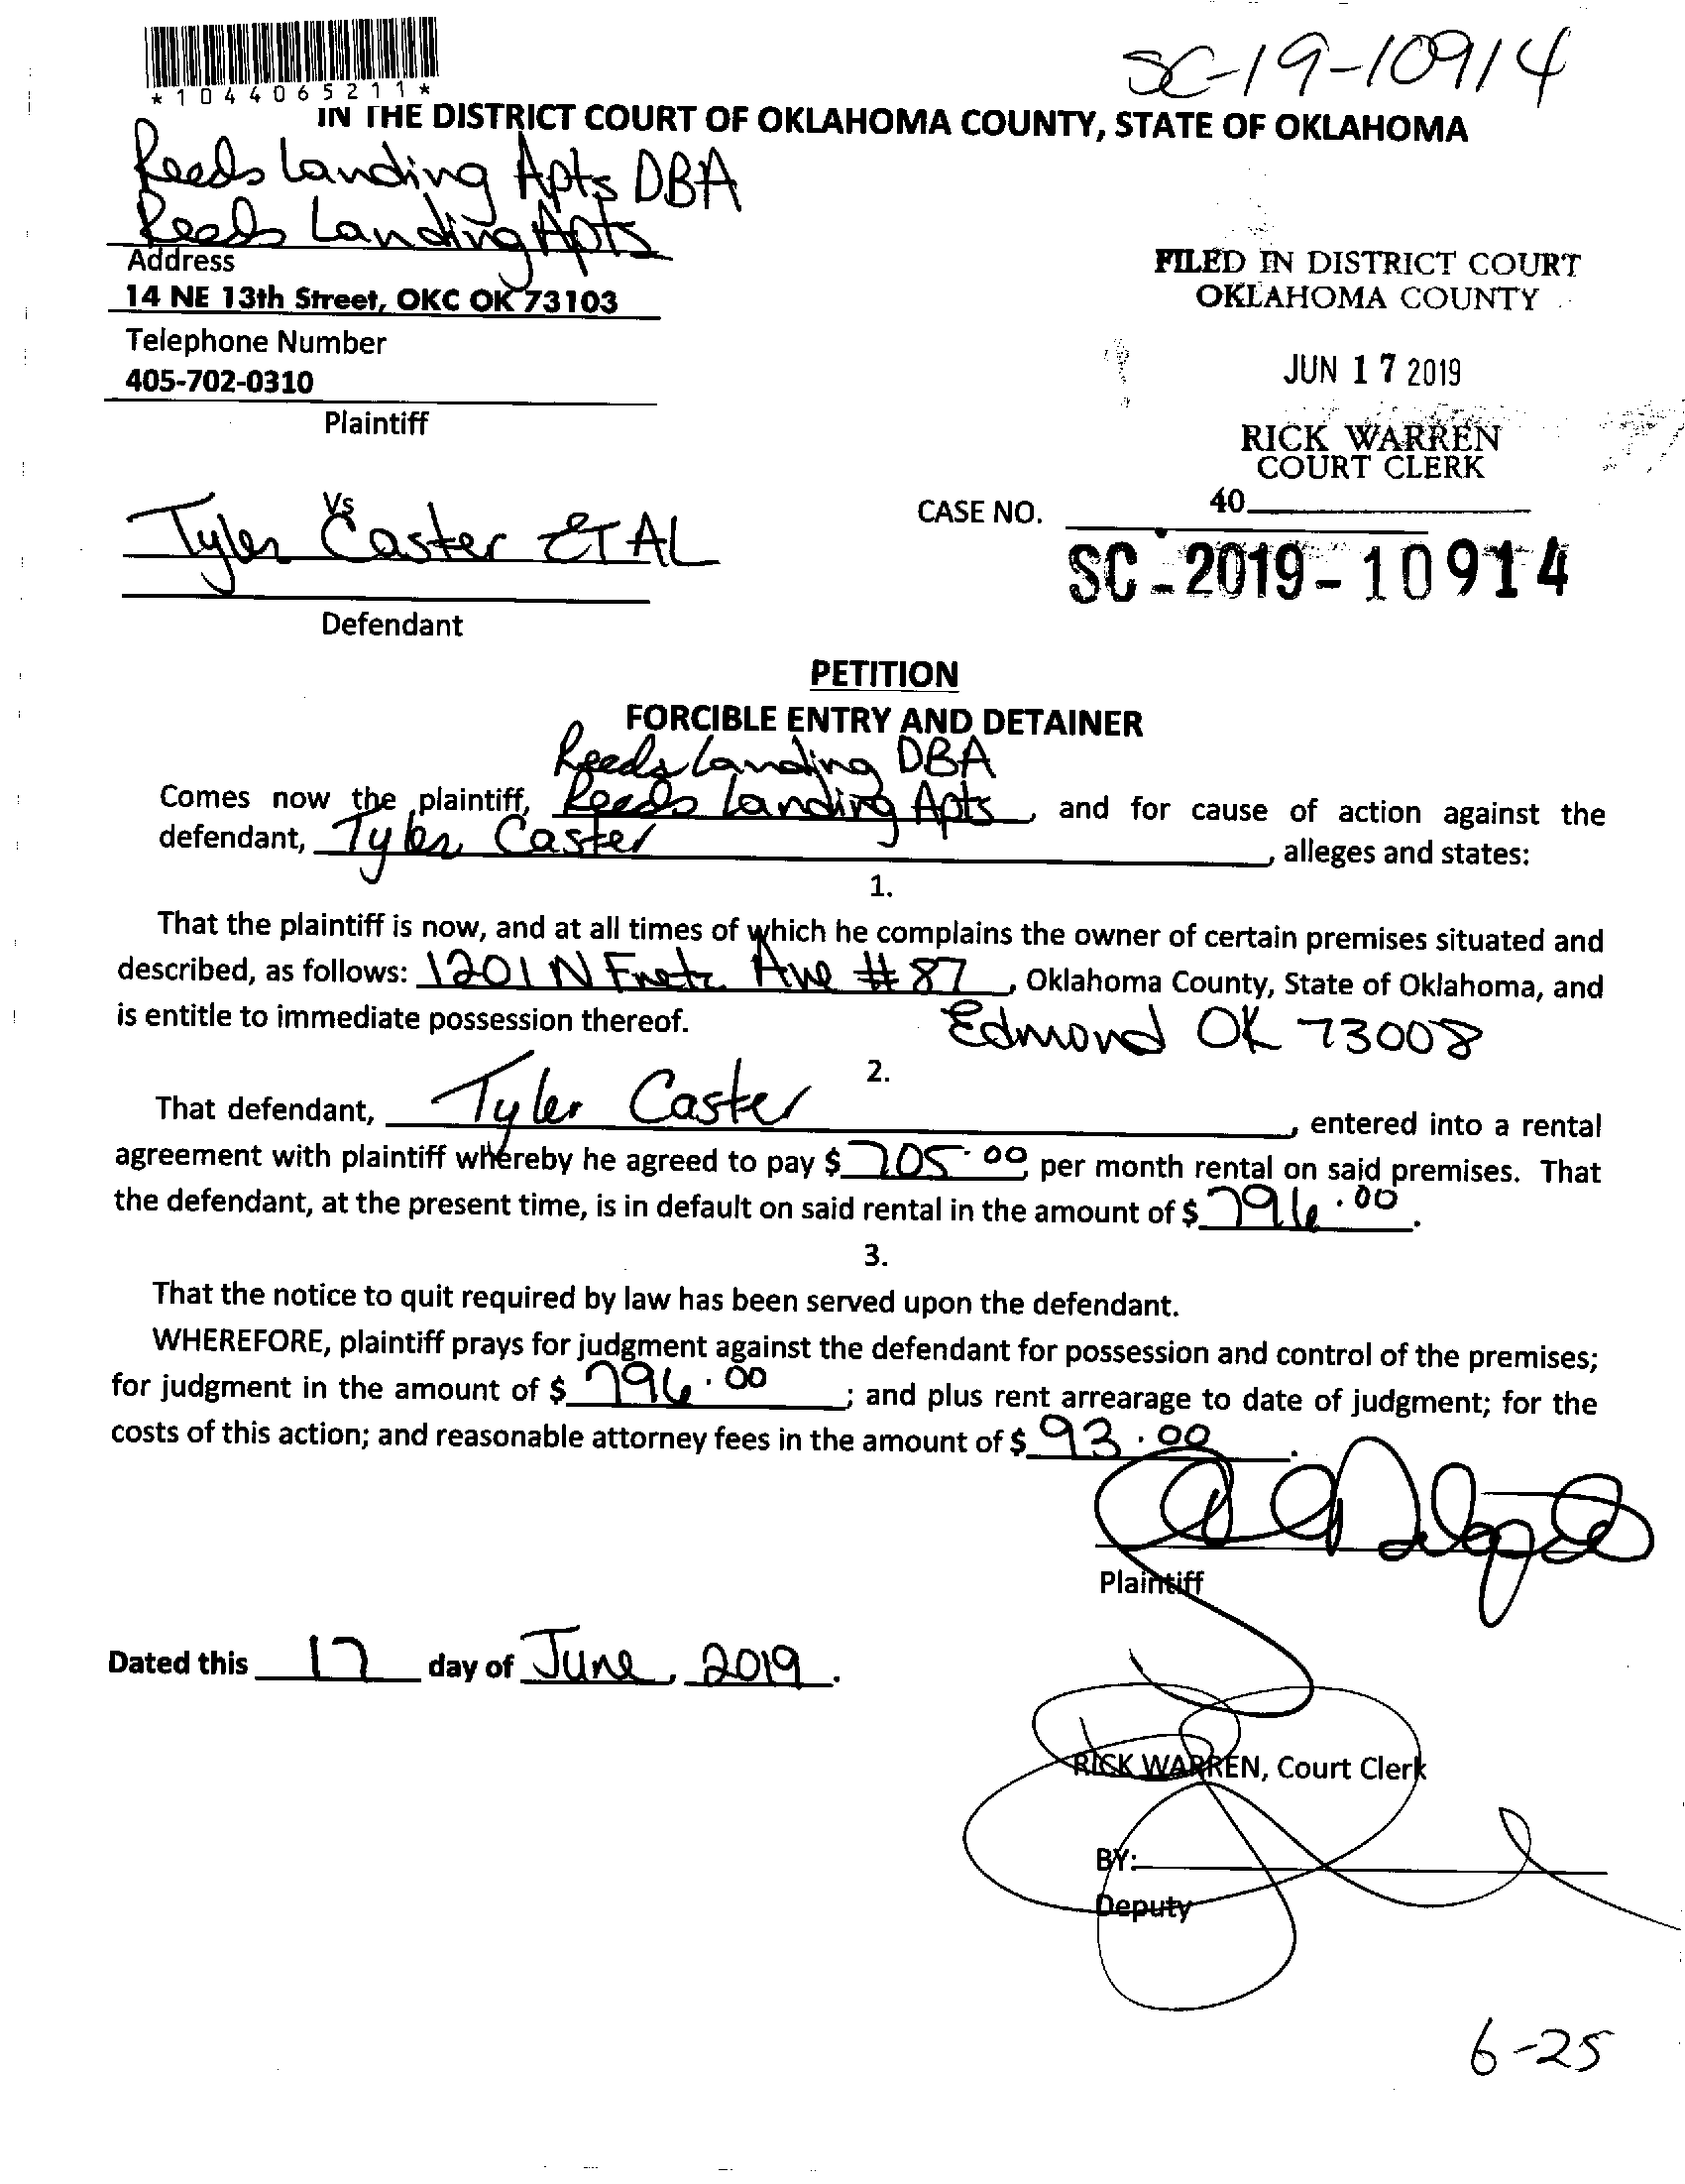 *1044065211*
SC-19-10914
IN THE DISTRICT COURT OF OKLAHOMA COUNTY, STATE OF OKLAHOMA
Reeds Landing Apts DBA
Reeds Landing Apts
Address
14 NE 13th Street, OKC OK 73103
Telephone Number
405-702-0310
Plaintiff
FILED IN DISTRICT COURT
OKLAHOMA COUNTY
JUN 17 2019
RICK WARREN
COURT CLERK
40
Vs
Tyler Caster ET AL
Defendant
CASE NO.
SC-2019-10914
PETITION
FORCIBLE ENTRY AND DETAINER
Reeds Landing DBA
Comes now the plaintiff, Reeds Landing Apts, and for cause of action against the
defendant, Tyler Caster, alleges and states:
1.
That the plaintiff is now, and at all times of which he complains the owner of certain premises situated and
described, as follows: 1201 N Fretz Ave # 87, Oklahoma County, State of Oklahoma, and
is entitle to immediate possession thereof. Edmond OK 73008
2.
That defendant, Tyler Caster, entered into a rental
agreement with plaintiff whereby he agreed to pay $ 705.00 per month rental on said premises. That
the defendant, at the present time, is in default on said rental in the amount of $ 796.00.
3.
That the notice to quit required by law has been served upon the defendant.
WHEREFORE, plaintiff prays for judgment against the defendant for possession and control of the premises;
for judgment in the amount of $ 796.00; and plus rent arrearage to date of judgment; for the
costs of this action; and reasonable attorney fees in the amount of $ 93.00.
Plaintiff
Dated this 17 day of June, 2019.
RICK WARREN, Court Clerk
BY:
Deputy
6-25